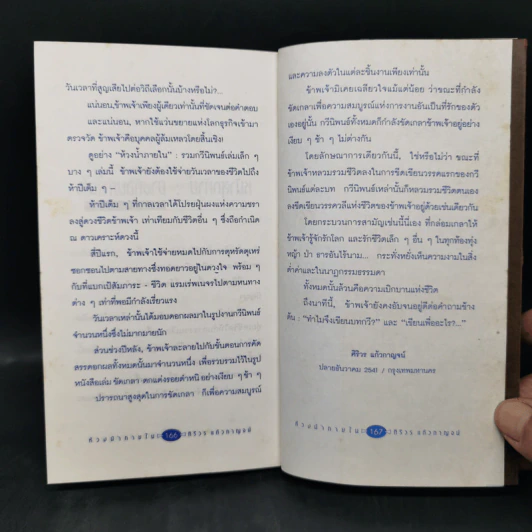 วันเวลาที่สูญเสียไปต่อวิถีเลือกนั้นบ้างหรือไม่?...
แน่นอน,ข้าพเจ้าเพียงผู้เดียวเท่านั้นที่ชัดเจนต่อคำตอบ
และแน่นอน, หากใช้แว่นขยายแห่งโลกธุรกิจเข้ามา
ตรวจวัด ข้าพเจ้าคือบุคคลผู้ล้มเหลวโดยสิ้นเชิง!
ดูอย่าง "ห้วงน้ำภายใน" : รวมกวีนิพนธ์เล่มเล็ก ๆ
บาง ๆ เล่มนี้ ข้าพเจ้ายังต้องใช้จ่ายวันเวลาของชีวิตไปถึง
ห้าปีเต็ม ๆ –
ห้าปีเต็ม ๆ ที่กาลเวลาได้โปรยฝุ่นผงแห่งความชรา
ลงสู่ดวงชีวิตข้าพเจ้า เท่าเทียมกับชีวิตอื่น ๆ ซึ่งถือกำเนิด
ณ ดาวเคราะห์ดวงนี้
สี่ปีแรก, ข้าพเจ้าใช้จ่ายหมดไปกับการดุหรัดดุเหร่
ซอกซอนไปตามสายทางซึ่งทอดยาวอยู่ในดวงใจ พร้อม ๆ
กับที่แบกเป้สัมภาระ - ชีวิต แรมเร่พเนจรไปตามหนทาง
ต่าง ๆ เท่าที่พอมีกำลังเรี่ยวแรง
วันเวลาเหล่านั้นได้มอบดอกผลมาในรูปงานกวีนิพนธ์
จำนวนหนึ่งซึ่งไม่มากมายนัก
ส่วนช่วงปีหลัง, ข้าพเจ้าละลายไปกับขั้นตอนการคัด
สรรดอกผลทั้งหมดนั้นมาจำนวนหนึ่ง เพื่อรวบรวมไว้ในรูป
หนังสือเล่ม ขัดเกลา ตกแต่งรอยตำหนิ อย่างเงียบ ๆ ช้า ๆ
ปรารถนาสูงสุดในการขัดเกลา : ก็เพื่อความสมบูรณ์
ห้วงน้ำภายใน 166 ศิริวร แก้วกาญจน์
และความลงตัวในแต่ละชิ้นงานเพียงเท่านั้น
ข้าพเจ้ามิเคยเฉลียวใจแม้แต่น้อย ว่าขณะที่กำลัง
ขัดเกลาเพื่อความสมบูรณ์แห่งการงานอันเป็นที่รักของตัว
เองอยู่นั้น กวีนิพนธ์ทั้งหมดก็กำลังขัดเกลาข้าพเจ้าอยู่อย่าง
เงียบ ๆ ช้า ๆ ไม่ต่างกัน
โดยลักษณาการเดียวกันนี้, ใช่หรือไม่ว่า ขณะที่
ข้าพเจ้าหลวมรวมชีวิตลงในการขีดเขียนวรรคแรกของกวี
นิพนธ์แต่ละบท กวีนิพนธ์เหล่านั้นก็หลวมรวมชีวิตตนเอง
ลงขีดเขียนวรรควลีแห่งชีวิตของข้าพเจ้าอยู่ด้วยเช่นเดียวกัน
โดยกระบวนการสามัญเช่นนี้นี่เอง ที่กล่อมเกลาให้
ข้าพเจ้ารู้จักรักโลก และรักชีวิตเล็ก ๆ อื่น ๆ ในทุกท้องทุ่ง
หญ้า ป่า ธารอันไร้นาม... กระทั่งหยั่งเห็นความงามในสิ่ง
ต่ำค่าและในนาฏกรรมธรรมดา
ทั้งหมดนั้นล้วนคือความเบิกบานแห่งชีวิต
ถึงนาทีนี้, ข้าพเจ้ายังคงอับจนอยู่ดีต่อคำถามข้าง
ต้น : "ทำไมจึงเขียนบทกวี?" และ "เขียนเพื่ออะไร?..."
ศิริวร แก้วกาญจน์
ปลายธันวาคม 2541 / กรุงเทพมหานคร
ห้วงน้ำภายใน 167 ศิริวร แก้วกาญจน์